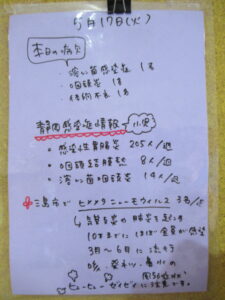 5月17日(火)
本日の病欠
・溶レン菌感染症 1名
・咽頭炎 1名
・体調不良 1名
静岡感染症情報 小児
・感染性胃腸炎 205人/週
・咽頭結膜熱 8人/週
・溶レン菌咽頭炎 14人/週
ヒトメタニューモウィルス 3名
気管支炎や肺炎を起こす
10才までにほぼ全員が感染
3月〜6月に流行
咳、発熱、鼻水
ヒューヒューゼイゼイに注意です。